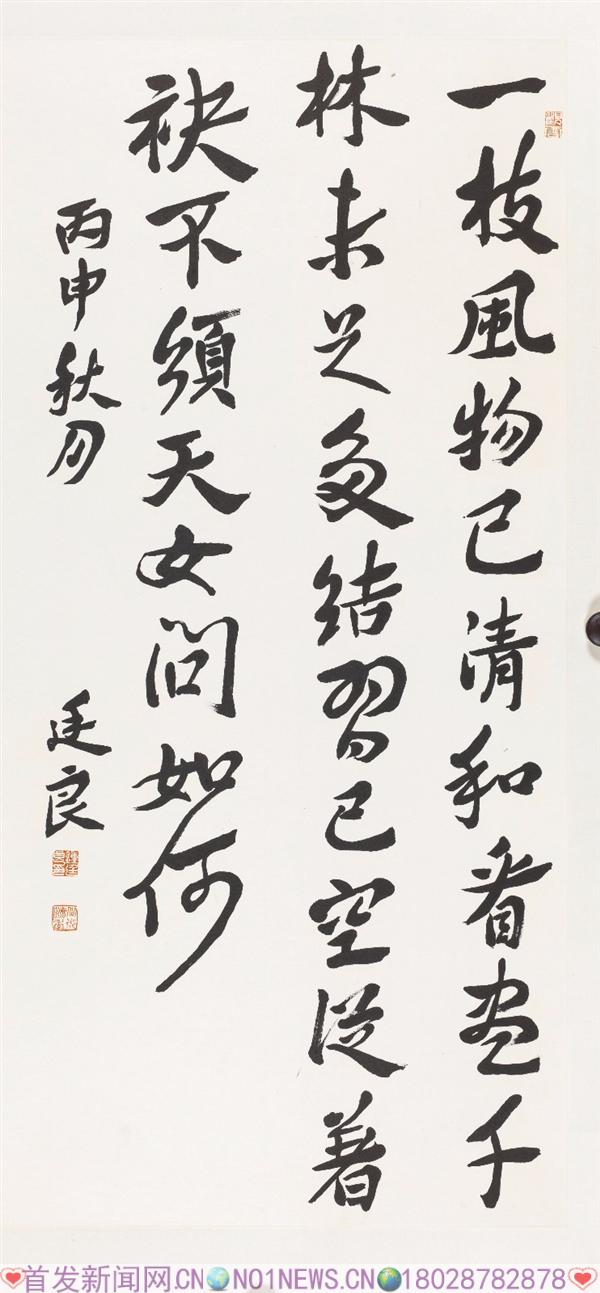 一枝風物已清和看盡千
林未足多結習已空從著
袂不須天女問如何
丙申秋月
廷良
首发新闻网.CN NO1NEWS.CN 18028782878